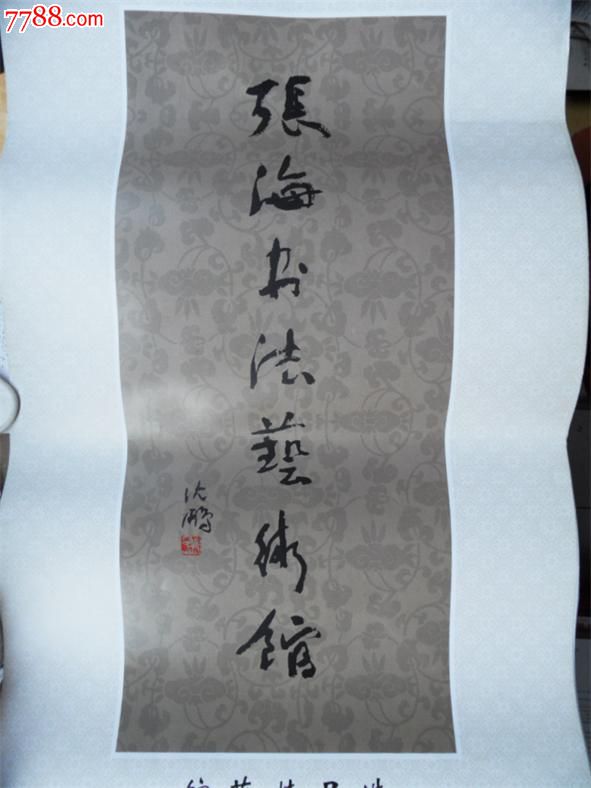 7788.com
張海书法藝術館
沈鹏